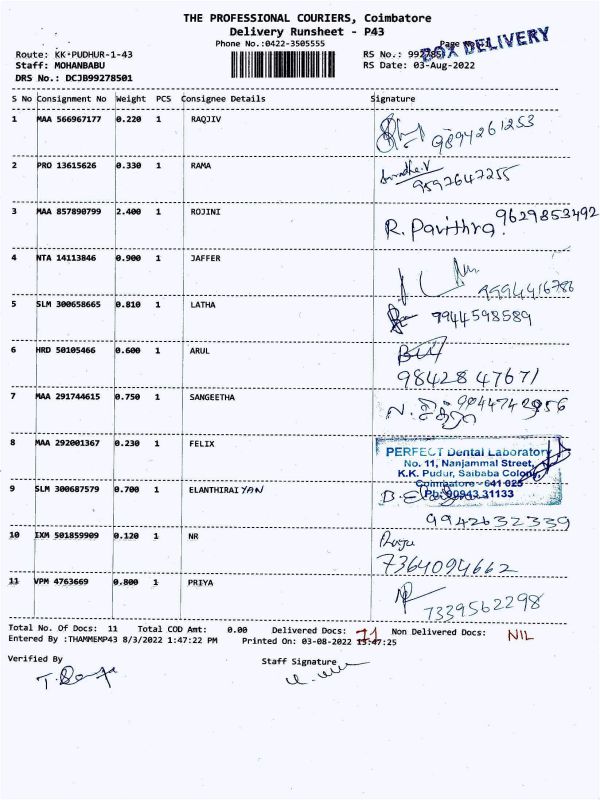 THE PROFESSIONAL COURIERS, Coimbatore
Delivery Runsheet - P43
Phone No.:0422-3505555
BOX DELIVERY
Route: KK-PUDHUR-1-43
RS No.:
Staff: MOHANBABU
RS Date: 03-Aug-2022
DRS No.: DCJB99278501
S No Consignment No Weight PCS Consignee Details Signature
1 MAA 566967177 0.220 1 RAQJIV 9894261253
2 PRO 13615626 0.330 1 RAMA 9592647255
3 MAA 857890799 2.400 1 ROJINI R. Pavithra 9629853492
4 NTA 14113846 0.900 1 JAFFER 9994416786
5 SLM 300658665 0.810 1 LATHA 9944598589
6 HRD 50105466 0.600 1 ARUL
9842847671
7 MAA 291744615 0.750 1 SANGEETHA
8 MAA 292001367 0.230 1 FELIX PERFECT Dental Laboratory
No. 11, Nanjammal Street,
K.K. Pudur, Saibaba Colony,
Coimbatore - 641 025
Ph: 90943 31133
9 SLM 300687579 0.700 1 ELANTHIRAIYAN
9942632339
10 IXM 501859909 0.120 1 NR
7364094662
11 VPM 4763669 0.800 1 PRIYA 7339562298
Total No. Of Docs: 11 Total COD Amt: 0.00 Delivered Docs: 11 Non Delivered Docs: NIL
Entered By :THAMMEMP43 8/3/2022 1:47:22 PM Printed On: 03-08-2022 13:47:25
Verified By Staff Signature